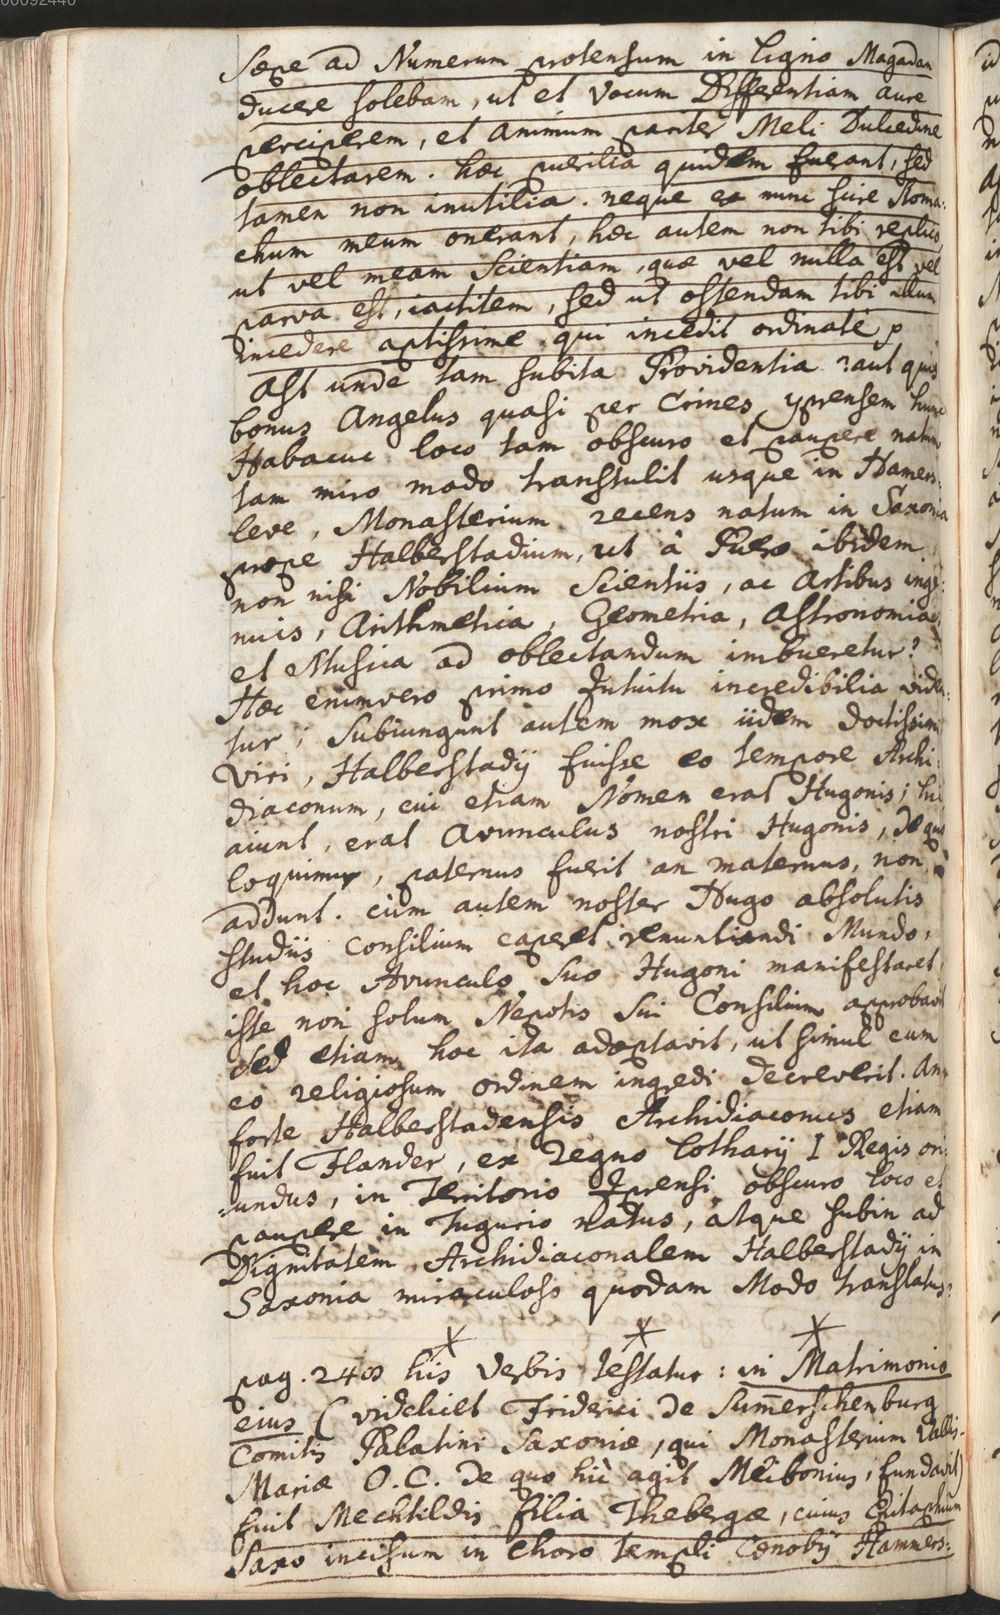 00092440
Sæpe ad Numerum protensum in ligno Magadan
ducere solebam, ut et Vocum Differentiam aure
perciperem, et animum pariter Meli Dulcedine
oblectarem. hæc puerilia quidem fuerant, sed
tamen non inutilia. neque ea nunc scire Stoma:
chum meum onerant, hæc autem non tibi replico,
ut vel meam Scientiam, quæ vel nulla est vel
parva est, iactitem, sed ut ostendam tibi illum
incedere aptissime qui incedit ordinate
Ast unde tam subita Providentia? aut quis
bonus Angelus quasi per Crines yprensem hunc
Habacuc loco tam obscuro et paupere natum
tam miro modo transtulit usque in Hamers:
leve, Monasterium recens natum in Saxonia
prope Halberstadium, ut à Puero ibidem
non nisi Nobilium Scientiis, ac Artibus inge:
nuis, Arithmetica, Geometria, Astronomia,
et Musica ad oblectandum imbueretur?
Hæc enimvero primo Intuitu incredibilia viden:
tur; Subiungunt autem mox iidem doctissimi
Viri, Halberstadij fuisse eo tempore Archi:
diaconum, cui etiam Nomen erat Hugonis; hic
aiunt, erat Avunculus nostri Hugonis, de quo
loquimur, paternus fuerit an maternus, non
addunt. cùm autem noster Hugo absolutis
studiis Consilium caperet renuntiandi Mundo,
et hoc Avunculo suo Hugoni manifestaret,
iste non solum Nepotis sui Consilium approbavit
sed etiam hoc ita adoptavit, ut simul cum
eo religiosum ordinem ingredi decreverit. An
forte Halberstadensis Archidiaconus etiam
fuit Flander, ex Regno Lotharij I Regis ori:
undus, in Territorio Iprensi obscuro loco et
paupere in Tugurio natus, atque subin ad
Dignitatem Archidiaconalem Halberstadij in
Saxonia miraculoso quodam Modo translatus?
pag. 248 his Verbis testatur: in Matrimonio
eius (videlicet Friderici de Sum̄erschenburg
Comitis Palatini Saxoniæ, qui Monasterium Vallis-
Mariæ O.C. de quo hìc agit Meibonius, fundavit)
fuit Mechtildis filia Thebergæ, cuius Epitaphium
Saxo incisum in Choro templi Cœnobij Hammers: